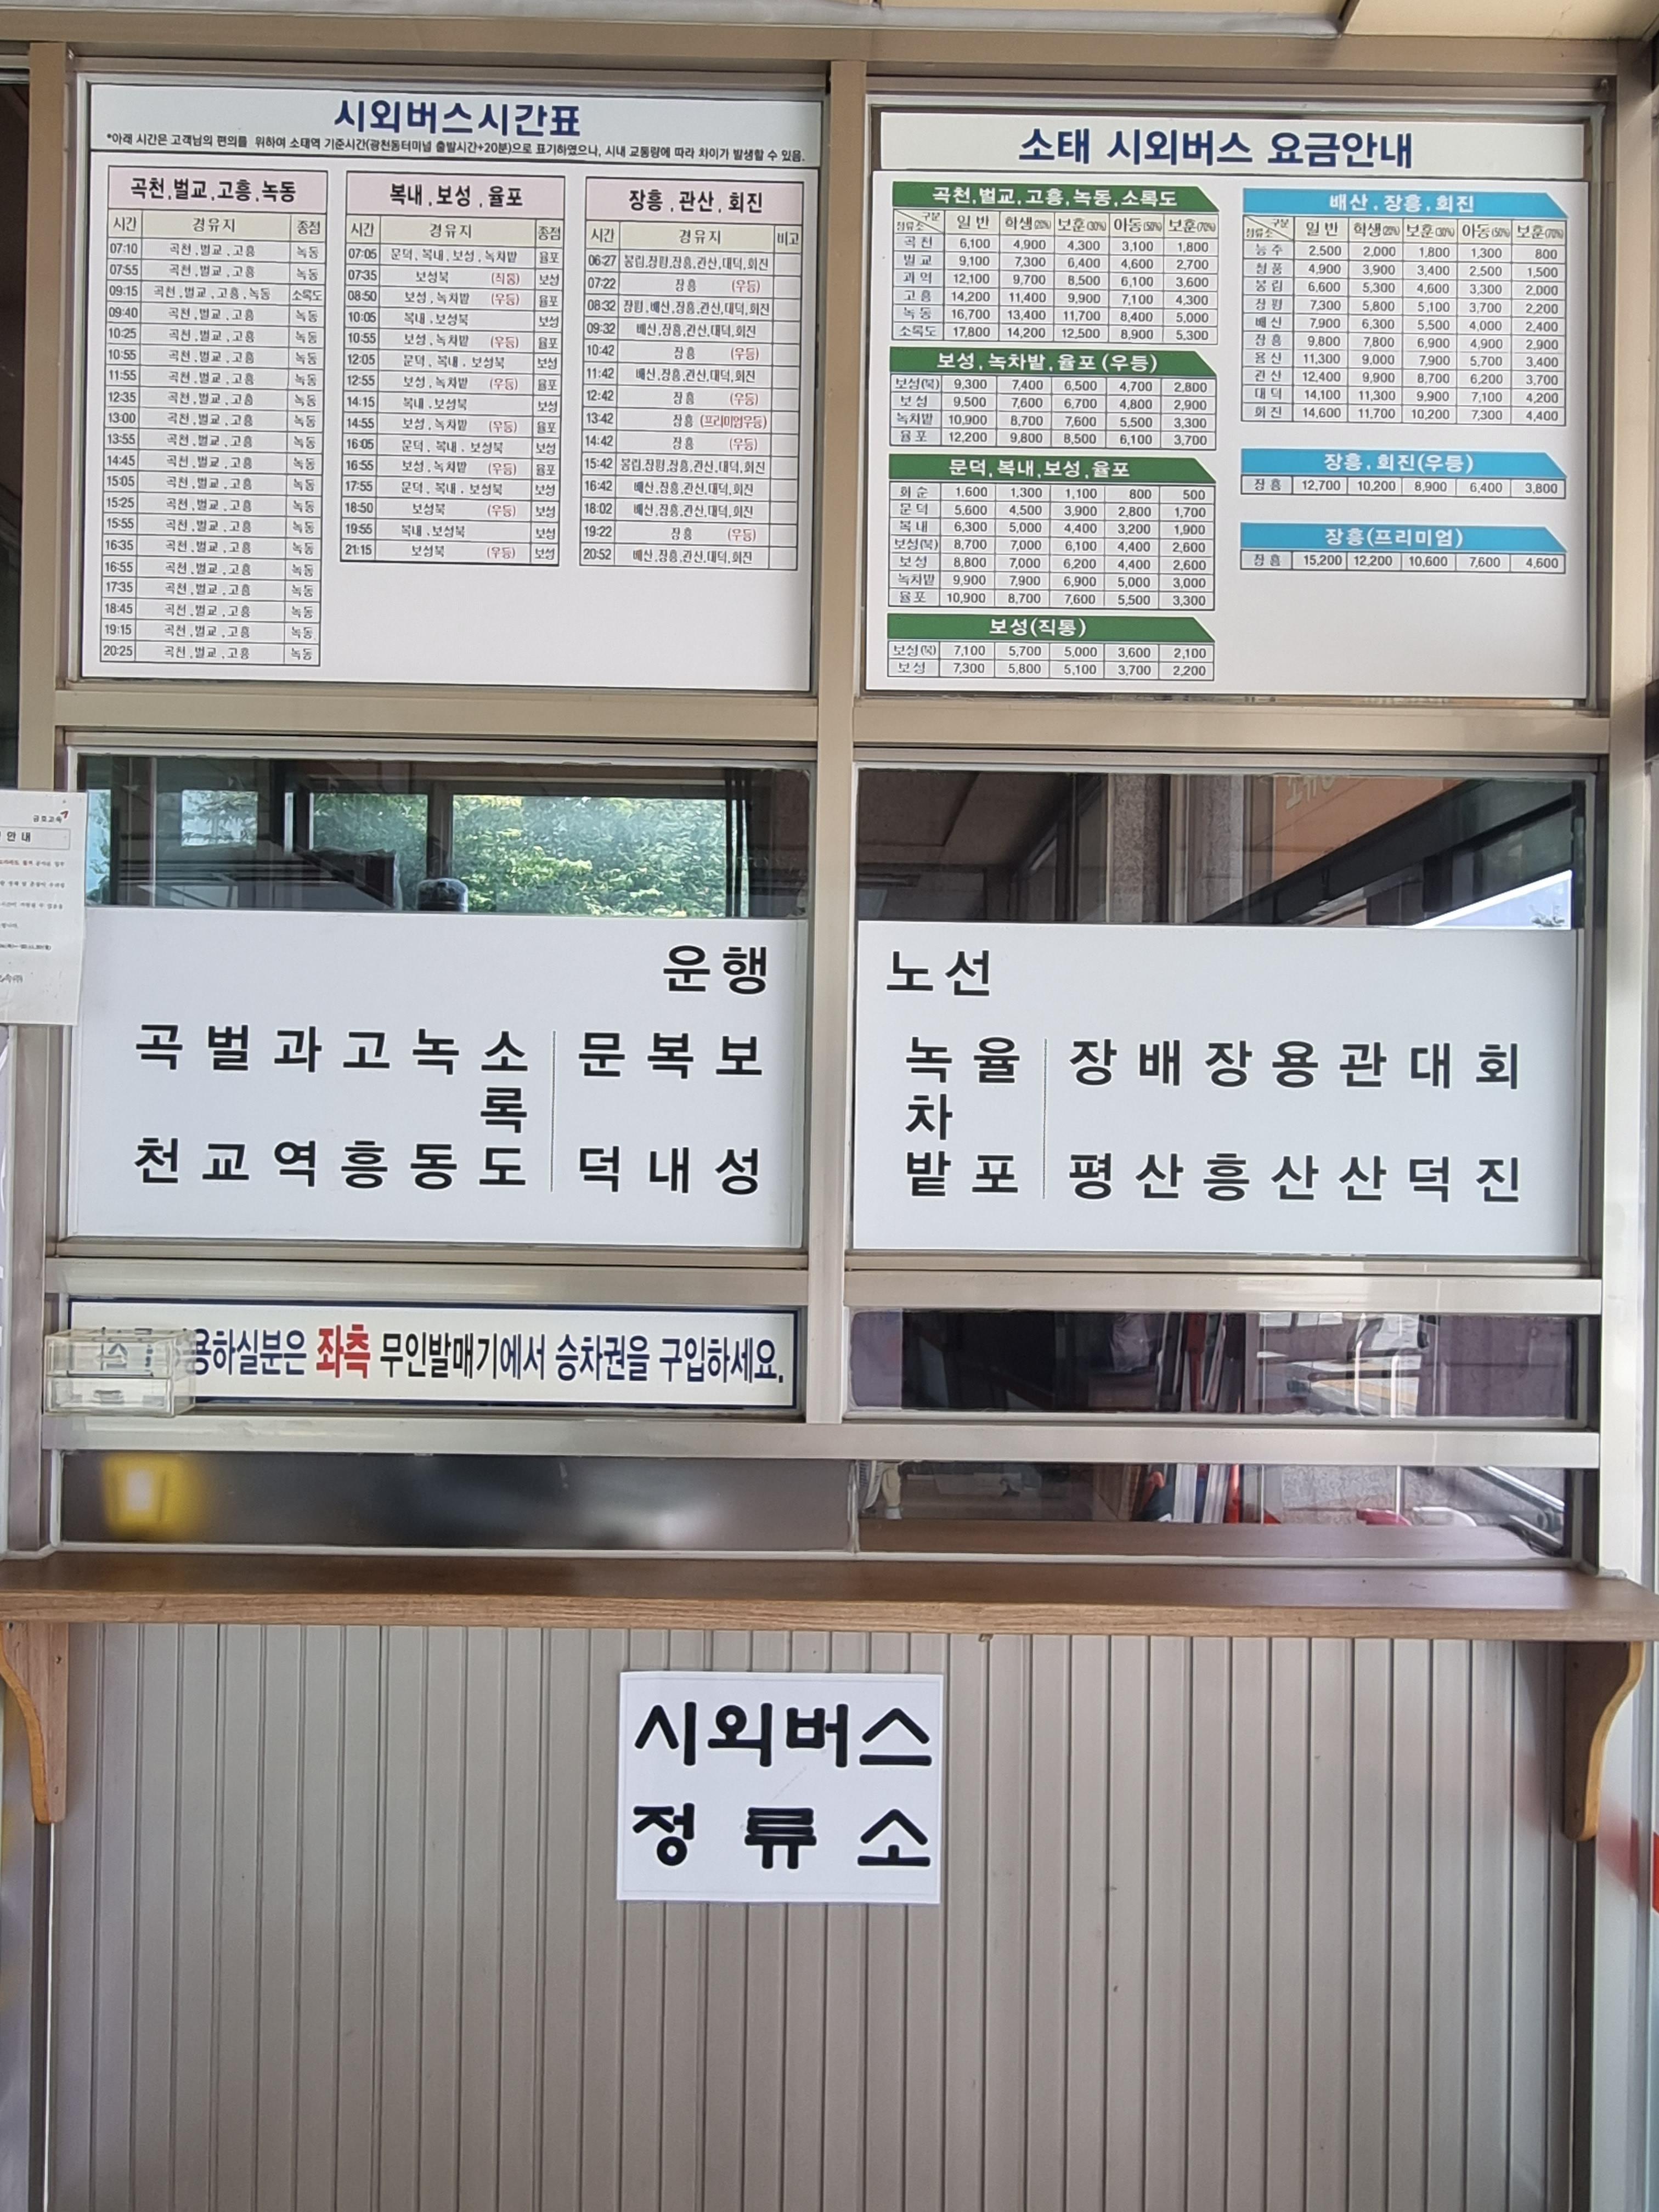 시외버스시간표
*아래 시간은 고객님의 편의를 위하여 소태역 기준시간(광천동터미널 출발시간+20분)으로 표기하였으나, 시내 교통량에 따라 차이가 발생할 수 있음.
곡천,벌교,고흥,녹동
시간 경유지 종점
07:10 곡천,벌교,고흥 녹동
07:55 곡천,벌교,고흥 녹동
09:15 곡천,벌교,고흥,녹동 소록도
09:40 곡천,벌교,고흥 녹동
10:25 곡천,벌교,고흥 녹동
10:55 곡천,벌교,고흥 녹동
11:55 곡천,벌교,고흥 녹동
12:35 곡천,벌교,고흥 녹동
13:00 곡천,벌교,고흥 녹동
13:55 곡천,벌교,고흥 녹동
14:45 곡천,벌교,고흥 녹동
15:05 곡천,벌교,고흥 녹동
15:25 곡천,벌교,고흥 녹동
15:55 곡천,벌교,고흥 녹동
16:35 곡천,벌교,고흥 녹동
16:55 곡천,벌교,고흥 녹동
17:35 곡천,벌교,고흥 녹동
18:45 곡천,벌교,고흥 녹동
19:15 곡천,벌교,고흥 녹동
20:25 곡천,벌교,고흥 녹동
복내,보성,율포
시간 경유지 종점
07:05 문덕,복내,보성,녹차밭 율포
07:35 보성북 (직통) 보성
08:50 보성,녹차밭 (우등) 율포
10:05 복내,보성북 보성
10:55 보성,녹차밭 (우등) 율포
12:05 문덕,복내,보성북 보성
12:55 보성,녹차밭 (우등) 율포
14:15 복내,보성북 보성
14:55 보성,녹차밭 (우등) 율포
16:05 문덕,복내,보성북 보성
16:55 보성,녹차밭 (우등) 율포
17:55 문덕,복내,보성북 보성
18:50 보성북 (우등) 보성
19:55 복내,보성북 보성
21:15 보성북 (우등) 보성
장흥,관산,회진
시간 경유지 비고
06:27 봉림,장평,장흥,관산,대덕,회진
07:22 장흥 (우등)
08:32 장평,배산,장흥,관산,대덕,회진
09:32 배산,장흥,관산,대덕,회진
10:42 장흥 (우등)
11:42 배산,장흥,관산,대덕,회진
12:42 장흥 (우등)
13:42 장흥 (프리미엄우등)
14:42 장흥 (우등)
15:42 봉림,장평,장흥,관산,대덕,회진
16:42 배산,장흥,관산,대덕,회진
18:02 배산,장흥,관산,대덕,회진
19:22 장흥 (우등)
20:52 배산,장흥,관산,대덕,회진
소태 시외버스 요금안내
곡천,벌교,고흥,녹동,소록도
정류소 구분 일반 학생(20%) 보훈(30%) 아동(50%) 보훈(70%)
곡천 6,100 4,900 4,300 3,100 1,800
벌교 9,100 7,300 6,400 4,600 2,700
과역 12,100 9,700 8,500 6,100 3,600
고흥 14,200 11,400 9,900 7,100 4,300
녹동 16,700 13,400 11,700 8,400 5,000
소록도 17,800 14,200 12,500 8,900 5,300
보성,녹차밭,율포(우등)
보성(북) 9,300 7,400 6,500 4,700 2,800
보성 9,500 7,600 6,700 4,800 2,900
녹차밭 10,900 8,700 7,600 5,500 3,300
율포 12,200 9,800 8,500 6,100 3,700
문덕,복내,보성,율포
화순 1,600 1,300 1,100 800 500
문덕 5,600 4,500 3,900 2,800 1,700
복내 6,300 5,000 4,400 3,200 1,900
보성(북) 8,700 7,000 6,100 4,400 2,600
보성 8,800 7,000 6,200 4,400 2,600
녹차밭 9,900 7,900 6,900 5,000 3,000
율포 10,900 8,700 7,600 5,500 3,300
보성(직통)
보성(북) 7,100 5,700 5,000 3,600 2,100
보성 7,300 5,800 5,100 3,700 2,200
배산,장흥,회진
정류소 구분 일반 학생(20%) 보훈(30%) 아동(50%) 보훈(70%)
능주 2,500 2,000 1,800 1,300 800
청풍 4,900 3,900 3,400 2,500 1,500
봉림 6,600 5,300 4,600 3,300 2,000
장평 7,300 5,800 5,100 3,700 2,200
배산 7,900 6,300 5,500 4,000 2,400
장흥 9,800 7,800 6,900 4,900 2,900
용산 11,300 9,000 7,900 5,700 3,400
관산 12,400 9,900 8,700 6,200 3,700
대덕 14,100 11,300 9,900 7,100 4,200
회진 14,600 11,700 10,200 7,300 4,400
장흥,회진(우등)
장흥 12,700 10,200 8,900 6,400 3,800
장흥(프리미엄)
장흥 15,200 12,200 10,600 7,600 4,600
금호고속
안내
운행 노선
곡천 벌교 과역 고흥 녹동 소록도 문덕 복내 보성
녹차밭 율포 장평 배산 장흥 용산 관산 대덕 회진
용하실분은 좌측 무인발매기에서 승차권을 구입하세요.
시외버스
정류소